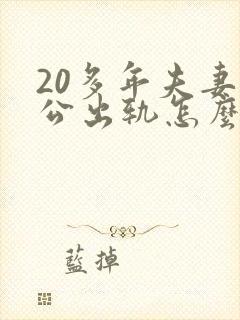 20多年夫妻
公出轨怎麽
藍掉